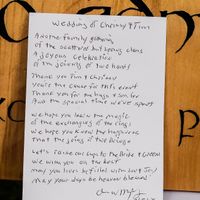 Wedding of Chrissy & Tim
Another family gathering
of the scattered but loving clans
A joyous celebration
of the joining of two hands
Thank you Tim & Chrissy
You're the cause for this event
Thank you for the hugs
And the special time we've spent
We hope you learn the magic
of the exchanging of the rings
We hope you know the happiness
that the joining of two brings
Let's raise our cups to the Bride & Groom
We wish you all the best
may you live
May your days be